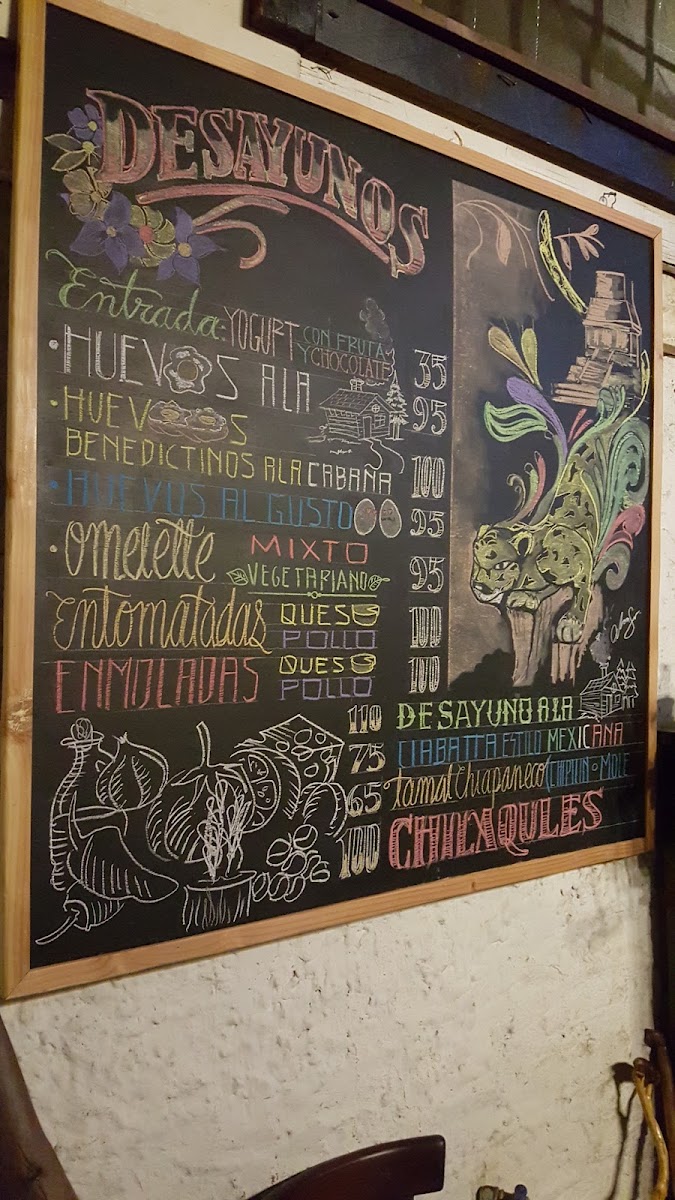 DESAYUNOS
Entrada: YOGURT CON FRUTA Y CHOCOLATE 35
• HUEVOS A LA 95
• HUEVOS
BENEDICTINOS A LA CABAÑA 100
• HUEVOS AL GUSTO 95
• Omelette MIXTO
VEGETARIANO 95
Entomatadas QUESO
POLLO 100
ENMOLADAS QUESO
POLLO 100
110 DESAYUNO A LA
75 CIABATTA ESTILO MEXICANA
65 Tamal Chiapaneco CHIPILIN O MOLE
100 CHILAQULES